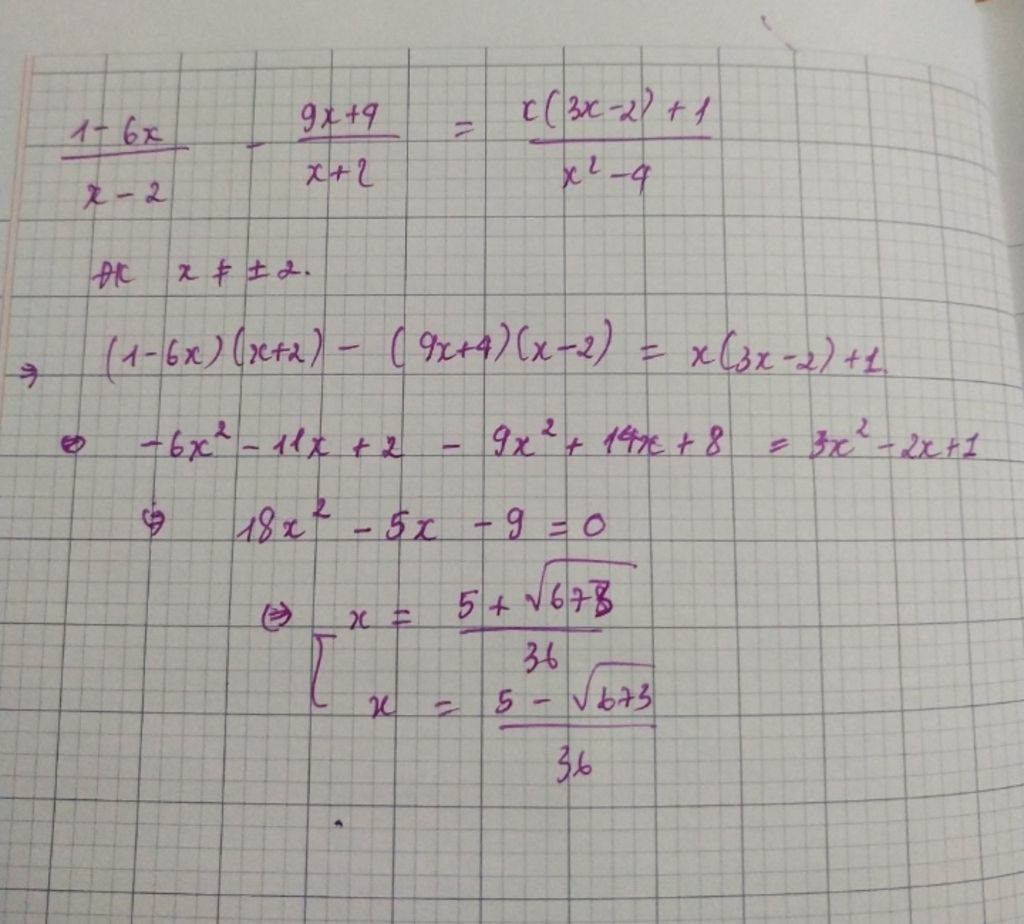 \frac{1-6x}{x-2} - \frac{9x+4}{x+2} = \frac{x(3x-2)+1}{x^2-4}
ĐK x ≠ ±2.
⇒ (1-6x)(x+2) - (9x+4)(x-2) = x(3x-2)+1.
⇔ -6x² - 11x + 2 - 9x² + 14x + 8 = 3x² - 2x + 1
⇔ 18x² - 5x - 9 = 0
⇔ [ x = \frac{5+\sqrt{673}}{36}
x = \frac{5-\sqrt{673}}{36}